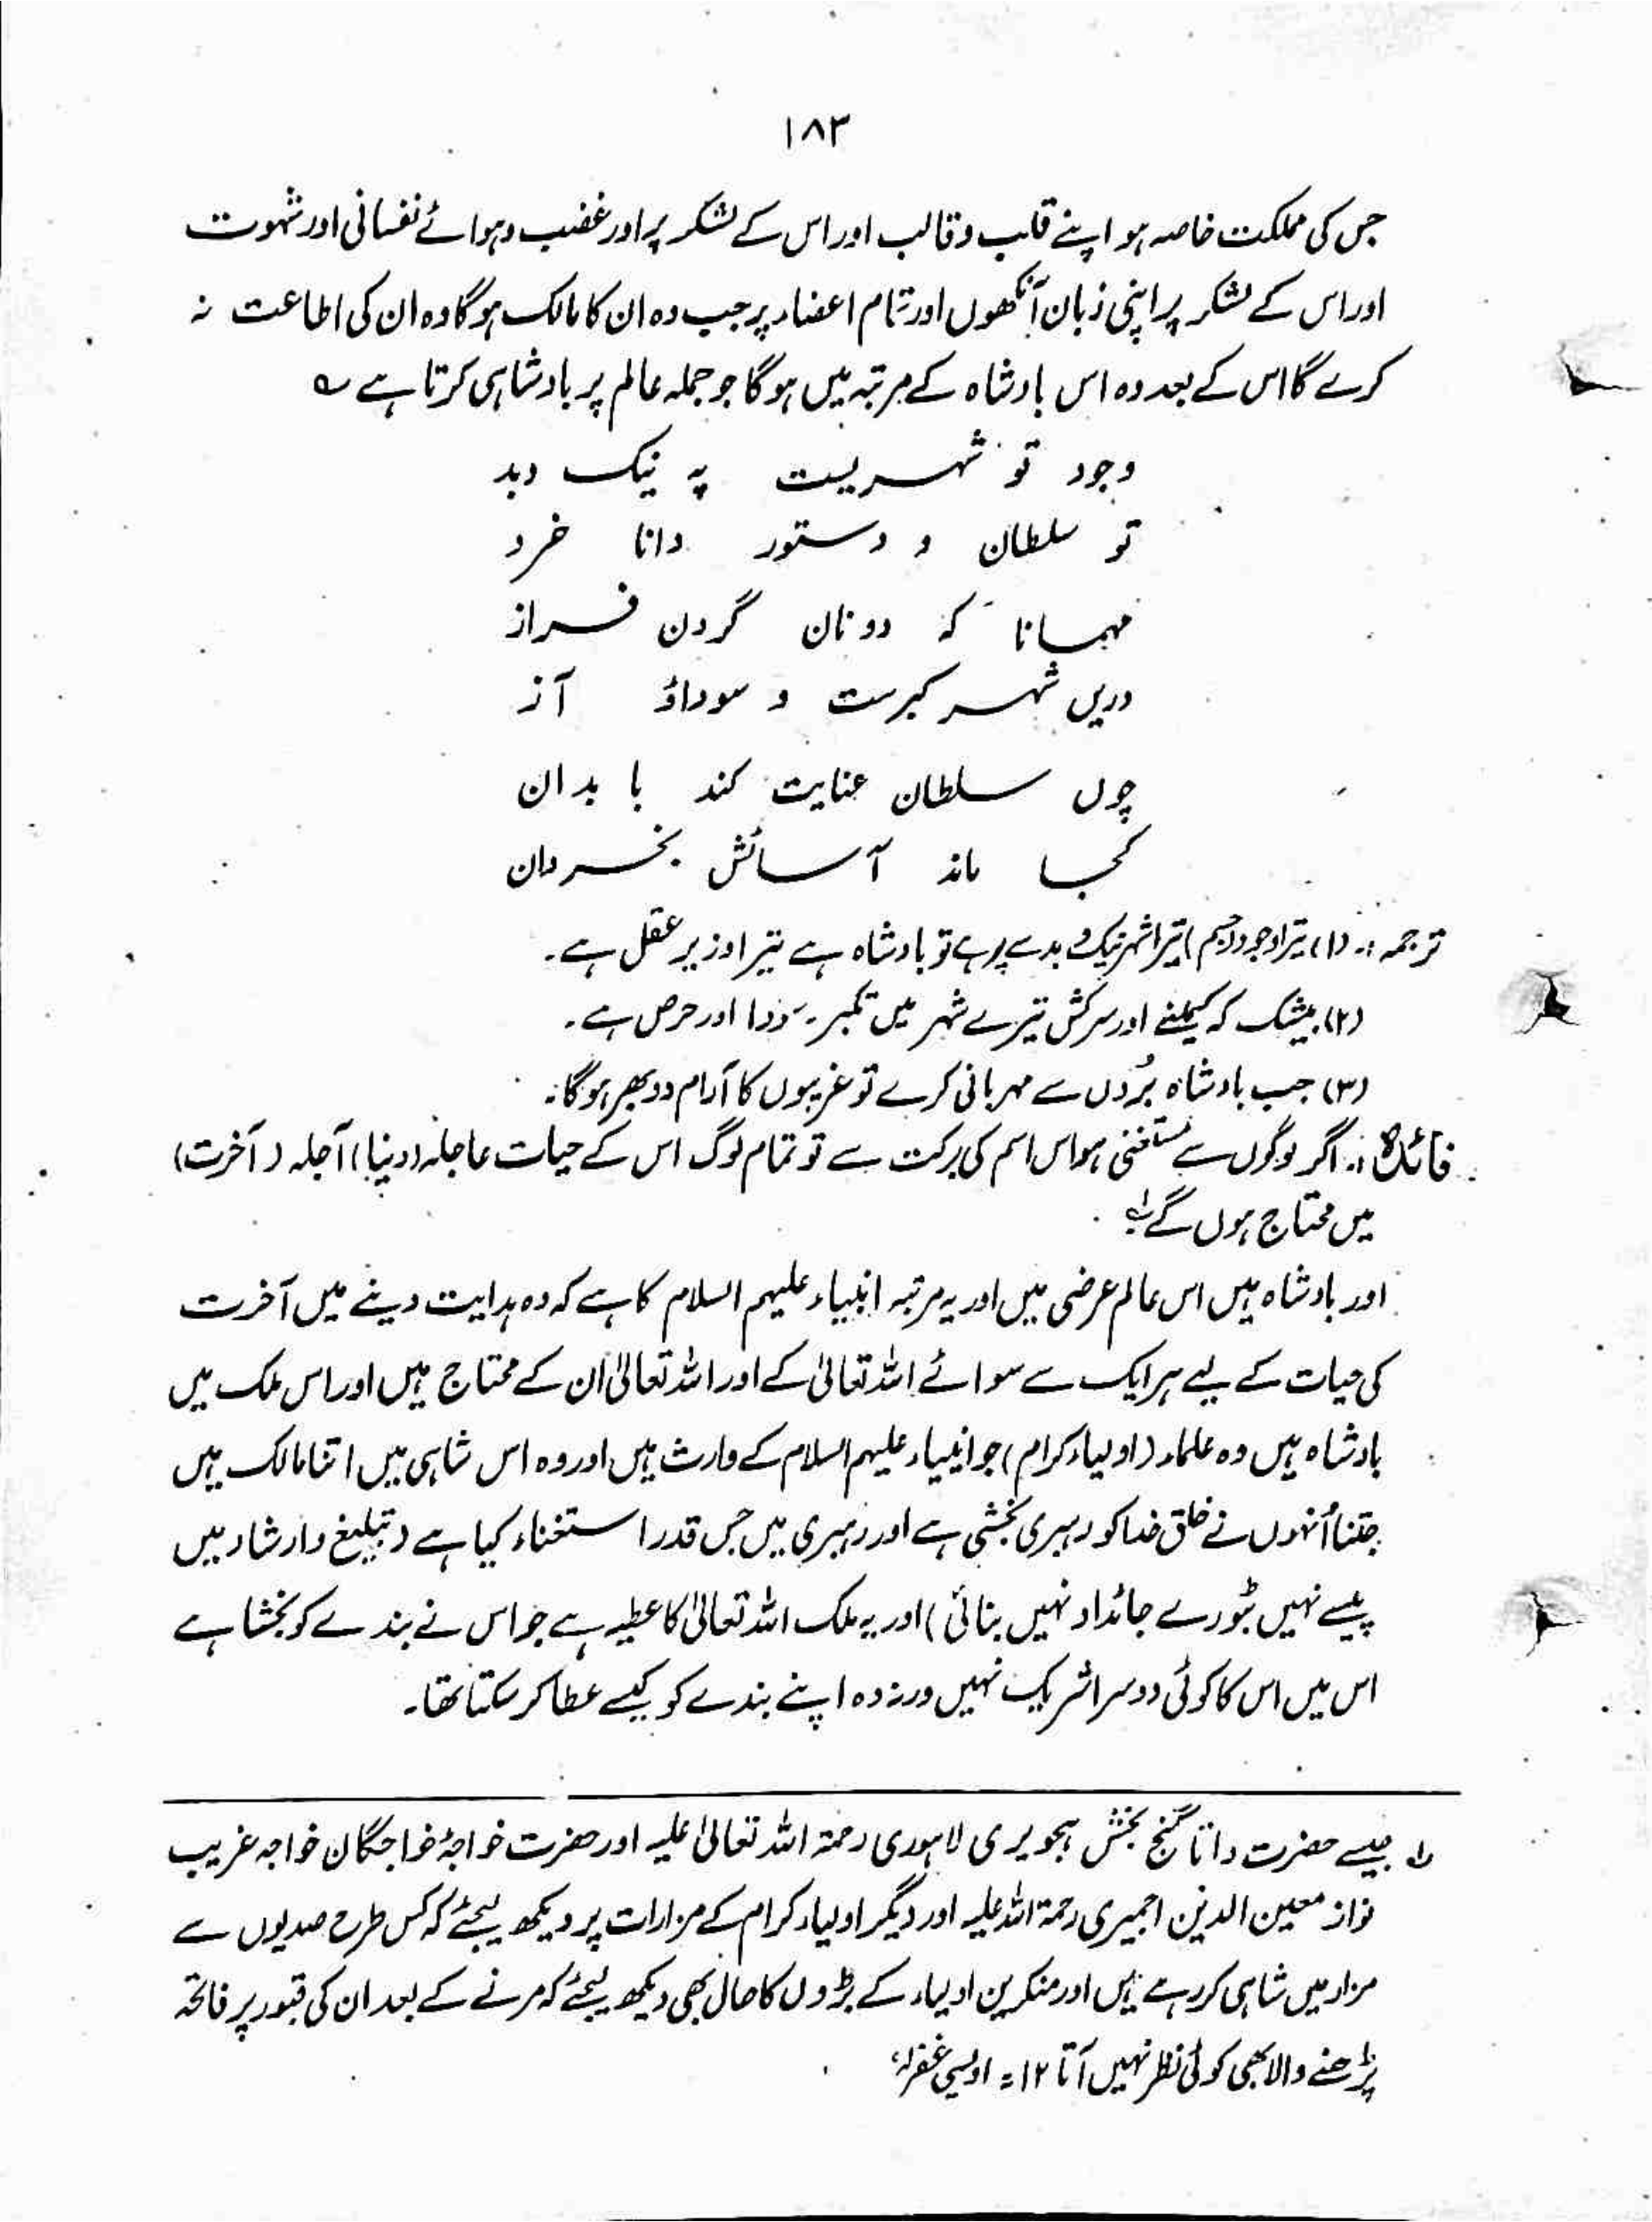 ۱۸۳
جس کی مملکت خاصہ ہو اپنے قلب و قالب اور اس کے لشکر پر اور غضب و ہوائے نفسانی اور شہوت
اور اس کے لشکر پر اپنی زبان آنکھوں اور تمام اعضاء پر جب وہ ان کا مالک ہوگا وہ ان کی اطاعت نہ
کرے گا اس کے بعد وہ اس بادشاہ کے مرتبہ میں ہوگا جو جملہ عالم پر بادشاہی کرتا ہے ؎
وجود تو شہریست پہ نیک وبد
تو سلطان و دستور دانا خرد
ہمانا کہ دونان گردن فراز
دریں شہر کبرست و سوداؤ آز
چوں سلطان عنایت کند با بدان
کجا ماند آسائش بخردان
ترجمہ :۔ (۱) تیرا وجود (جسم) تیرا شہر نیک و بد سے پر ہے تو بادشاہ ہے تیرا وزیر عقل ہے۔
(۲) بیشک کہ کمینے اور سرکش تیرے شہر میں تکبر۔ سودا اور حرص ہے۔
(۳) جب بادشاہ بُروں سے مہربانی کرے تو غریبوں کا آرام دوبھر ہوگا۔
فائدہ :۔ اگر لوگوں سے مستغنی ہو اس اسم کی برکت سے تو تمام لوگ اس کے حیات عاجلہ (دنیا) آجلہ (آخرت)
میں محتاج ہوں گے ؂۱
اور بادشاہ ہیں اس عالم عرضی میں اور یہ مرتبہ انبیاء علیہم السلام کا ہے کہ وہ ہدایت دینے میں آخرت
کی حیات کے لیے ہر ایک سے سوائے اللہ تعالیٰ کے اور اللہ تعالیٰ ان کے محتاج ہیں اور اس ملک میں
بادشاہ ہیں وہ علماء (اولیاء کرام) جو انبیاء علیہم السلام کے وارث ہیں اور وہ اس شاہی میں اتنا مالک ہیں
جتنا اُنہوں نے خلق خدا کو رہبری بخشی ہے اور رہبری میں جس قدر استغناء کیا ہے (تبلیغ و ارشاد میں
پیسے نہیں بٹورے جائداد نہیں بنائی) اور یہ ملک اللہ تعالیٰ کا عطیہ ہے جو اس نے بندے کو بخشا ہے
اس میں اس کا کوئی دوسرا شریک نہیں ورنہ وہ اپنے بندے کو کیسے عطا کر سکتا تھا۔
؂۱ جیسے حضرت داتا گنج بخش ہجویری لاہوری رحمۃ اللہ تعالیٰ علیہ اور حضرت خواجۂ خواجگان خواجہ غریب
نواز معین الدین اجمیری رحمۃ اللہ علیہ اور دیگر اولیاء کرام کے مزارات پر دیکھ لیجئے کہ کس طرح صدیوں سے
مزار میں شاہی کر رہے ہیں اور منکرین اولیاء کے بڑوں کا حال بھی دیکھ لیجئے کہ مرنے کے بعد ان کی قبور پر فاتحہ
پڑھنے والا بھی کوئی نظر نہیں آتا ۱۲ = اویسی غفرلہٗ